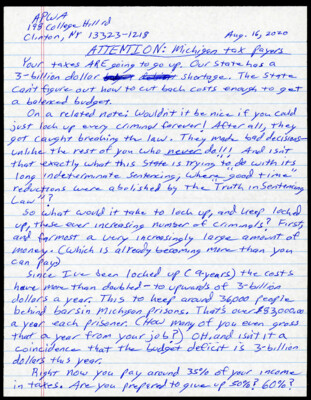 APWA
198 College Hill rd
Clinton, NY 13323-1218
Aug. 16, 2020
ATTENTION: Michigan tax payers
Your taxes ARE going to go up. Our State has a
3-billion dollar shortage. The State
can't figure out how to cut back costs enough to get
a balanced budget.
On a related note: Wouldn't it be nice if you cald
just lock up every criminal forever! After all, they
got caught breaking the law. They made bad decisions-
unlike the rest of you who never do!!! And isn't
that exactly what this State is trying to do with its
long indeterminate sentencing, where "good time"
reductions were abolished by the Truth in Sentencing
Law"?
So what would it take to lock up, and keep locked
up, these ever increasing number of criminals? First,
and formost a very increasingly large amount of
money. (Which is already becoming more than you
can pay)
Since I've been locked up (9 years) the costs
have more than doubled - to upwards of 3-billion
dollars a year. This to keep around 36,000 people
behind bars in Michigan prisons. That's over $83,000.00
a year each prisoner. (How many of you even gross
that a year from your job?) OH, and isn't it a
coincidence that the budget deficit is 3-billion
dollars this year.
Right now you pay around 35% of your income
in taxes. Are you prepared to give up 50%? 60%?